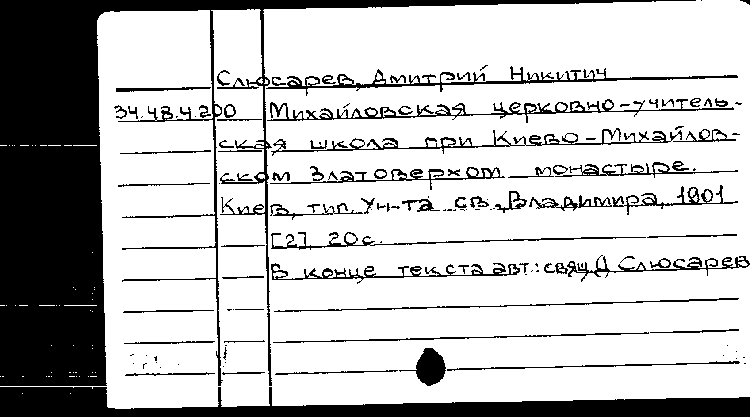 Слюсарев, Дмитрий Никитич
34.48.4.200 Михайловская церковно-учитель-
ская школа при Киево-Михайлов-
ском Златоверхом монастыре.
Киев, тип. Ун-та св. Владимира, 1901
[2], 20 с.
В конце текста авт.: свящ. Д. Слюсарев